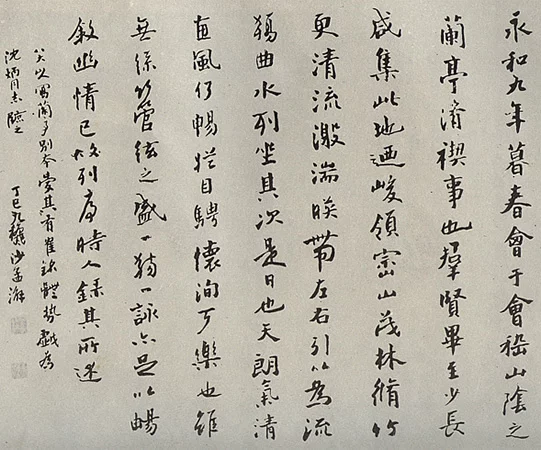 永和九年暮春會于會嵇山陰之
蘭亭脩禊事也羣賢畢至少長
咸集此地迺峻領崈山茂林脩竹
更清流激湍暎帶左右引以為流
觴曲水列坐其次是日也天朗氣清
風仍暢娛目騁懷洵可樂也雖
無絲竹管絃之盛一觴一詠亦足以暢
敘幽情已故列序時人錄其所述
寫蘭亭別本愛其有崔體勢戲為
沈炳同志臨之
丁巳九穐沙孟海